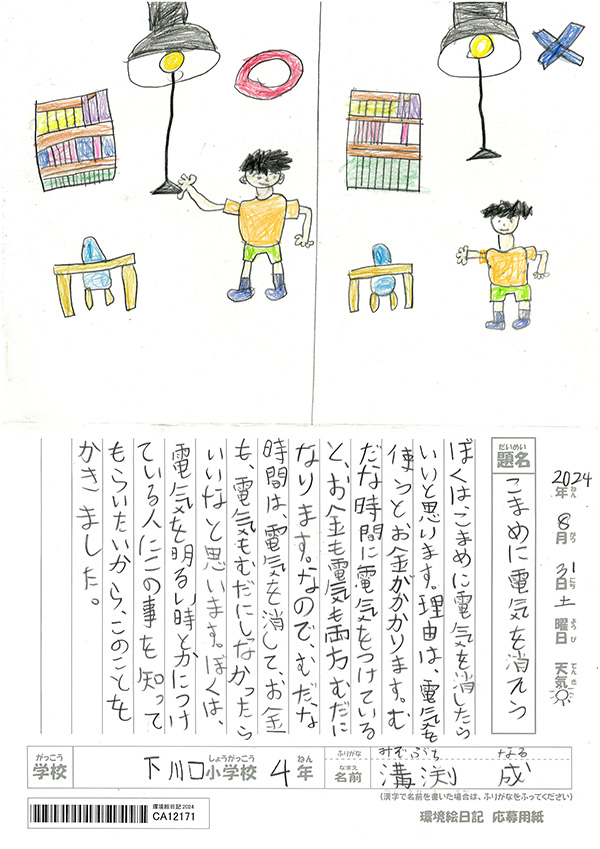 2024年ねん 8月がつ 31日にち 土曜日ようび 天気てんき
だいめい
題名
こまめに電気を消そう
ぼくは、こまめに電気を消したら
いいと思います。理由は、電気を
使うとお金がかかります。む
だな時間に電気をつけている
と、お金も電気も両方むだに
なります。なので、むだな
時間は、電気を消して、お金
も、電気もむだにしなかったら
いいなと思います。ぼくは、
電気を明るい時とかにつけ
ている人にこの事を知って
もらいたいから、このことを
かきました。
がっこう
学校
下川口小学校しょうがっこう 4年ねん
ふりがな
みぞぶち なる
なまえ
名前
溝渕 成
(漢字で名前を書いた場合は、ふりがなをふってください)
環境絵日記2024
CA12171
環境絵日記 応募用紙